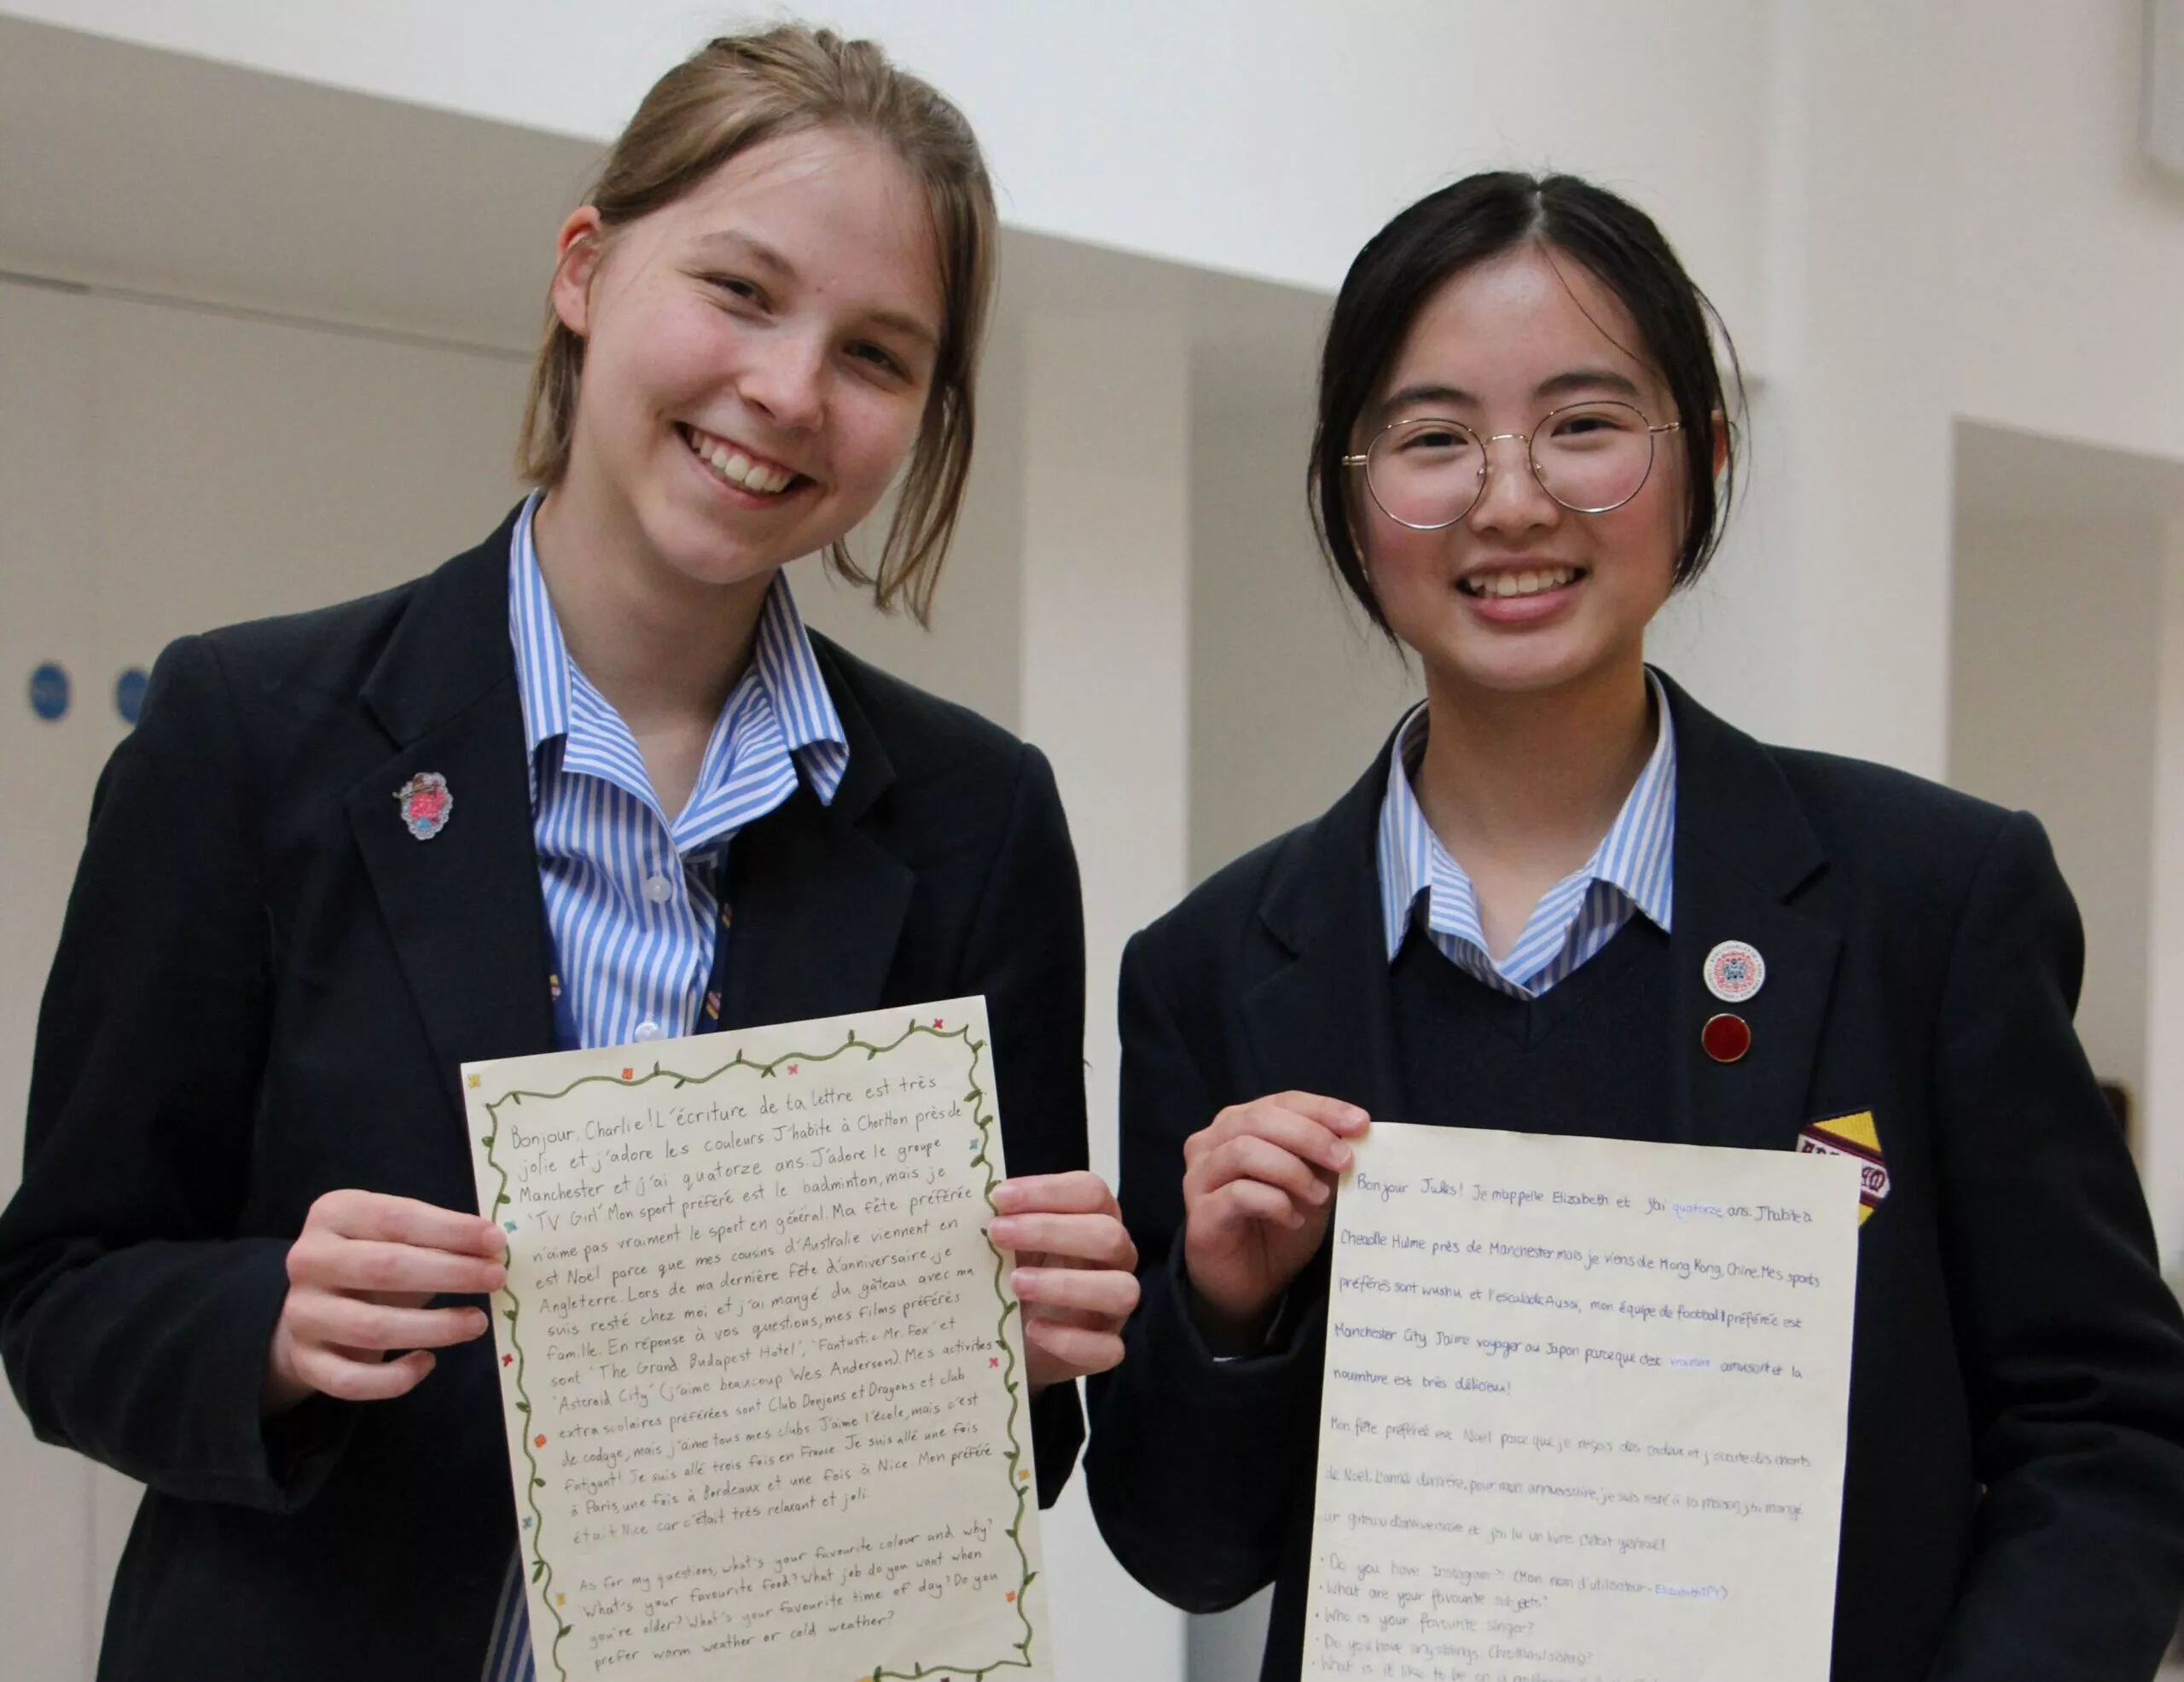 Bonjour, Charlie! L'écriture de ta lettre est très
jolie et j'adore les couleurs J'habite à Chorlton près de
Manchester et j'ai quatorze ans. J'adore le groupe
'TV Girl' Mon sport préféré est le badminton, mais je
n'aime pas vraiment le sport en général. Ma fête préférée
est Noel parce que mes cousins d'Australie viennent en
Angleterre. Lors de ma dernière fête d'anniversaire, je
suis resté chez moi et j'ai mangé du gâteau avec ma
famille. En réponse à vos questions, mes films préférés
sont 'The Grand Budapest Hotel', 'Fantastic Mr. Fox' et
'Asteroid City' (j'aime beaucoup Wes Anderson). Mes activites
extra scolaires préférées sont Club Donjons et Dragons et club
de codage, mais j'aime tous mes clubs. J'aime l'école, mais c'est
fatigant! Je suis allé trois fois en France Je suis allé une fois
à Paris, une fois à Bordeaux et une fois à Nice Mon préféré
était Nice car c'était très relaxant et joli
As for my questions, what's your favourite colour and why?
What's your favourite food? What job do you want when
you're older? What's your favourite time of day? Do you
prefer warm weather or cold weather?
Bonjour Jules! Je m'appelle Elizabeth et j'ai quatorze ans. J'habite à
Cheadle Hulme près de Manchester mais je viens de Hong Kong, Chine. Mes sports
préférés sont wushu et l'escalade. Aussi, mon équipe de football préférée est
Manchester City. J'aime voyager au Japon parce que c'est vraiment amusant et la
nourriture est très délicieux!
Mon fête préférée est Noël parce que je reçois des cadeux et j'écoute des chants
de Noël. L'anné dernière, pour mon anniversaire, je suis resté à la maison, j'ai mangé
un gateau d'anniversaire et j'ai lu un livre. C'était génial!
• Do you have Instagram? (Mon nom d'utilisateur -
• What are your favourite subjects?
• Who is your favourite singer?
• Do you have any siblings (brothers/sisters)?
• What is it like to be on a